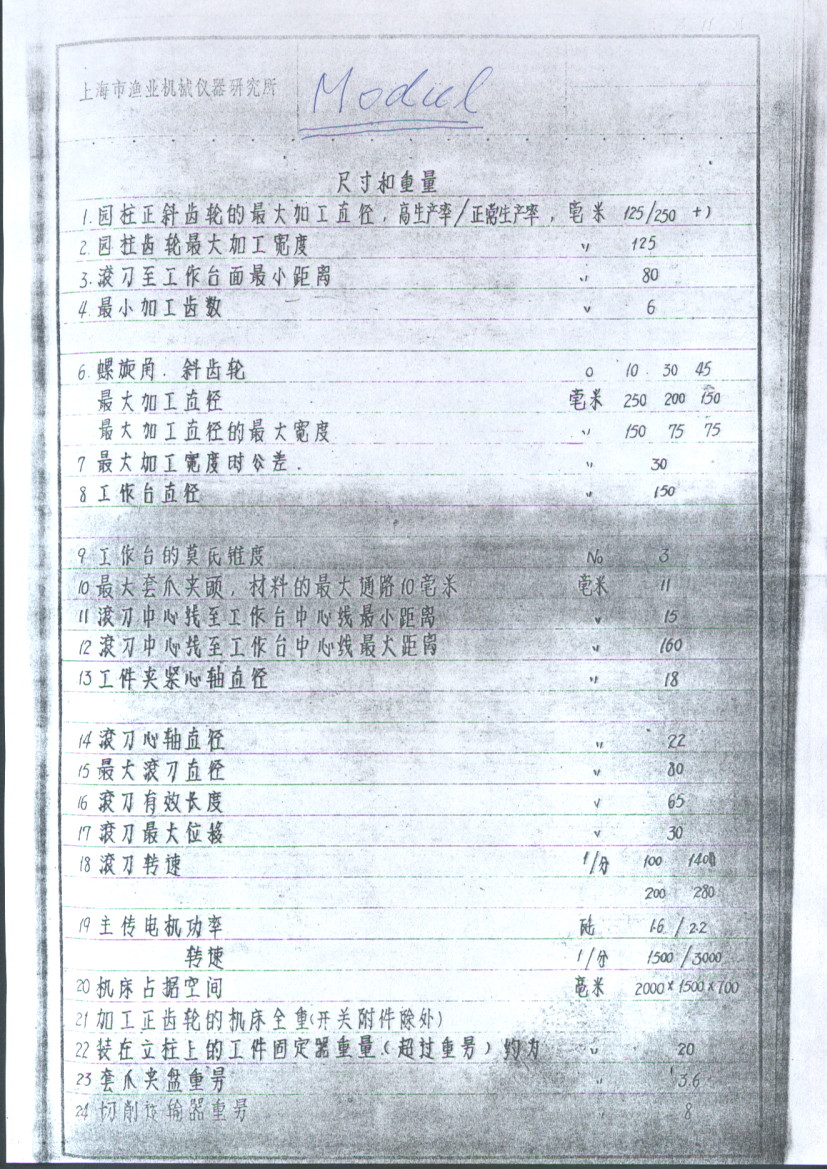 上海市渔业机械仪器研究所
Modul
尺寸和重量
1.园柱正斜齿轮的最大加工直径,高生产率/正常生产率, 毫米 125/250 +)
2.园柱齿轮最大加工宽度 〃 125
3.滚刀至工作台面最小距离 〃 80
4.最小加工齿数 〃 6
6.螺旋角. 斜齿轮 o 10 . 30 45
最大加工直径 毫米 250 200 150
最大加工直径的最大宽度 〃 150 75 75
7 最大加工宽度时公差. 〃 30
8 工作台直径 〃 150
9 工作台的莫氏锥度 No 3
10 最大套爪夹头,材料的最大通路10毫米 毫米 11
11 滚刀中心线至工作台中心线最小距离 〃 15
12 滚刀中心线至工作台中心线最大距离 〃 160
13 工件夹紧心轴直径 〃 18
14 滚刀心轴直径 〃 22
15 最大滚刀直径 〃 80
16 滚刀有效长度 〃 65
17 滚刀最大位移 〃 30
18 滚刀转速 1/分 100 140
200 280
19 主传电机功率 1.6 / 2.2
转速 1/分 1500 / 3000
20 机床占据空间 毫米 2000×1500×700
21 加工正齿轮的机床全重(开关附件除外)
22 装在立柱上的工件固定器重量(超过重量)约为 〃 20
23 套爪夹盘重量 〃 3.6
24 切削运输器重量 〃 8